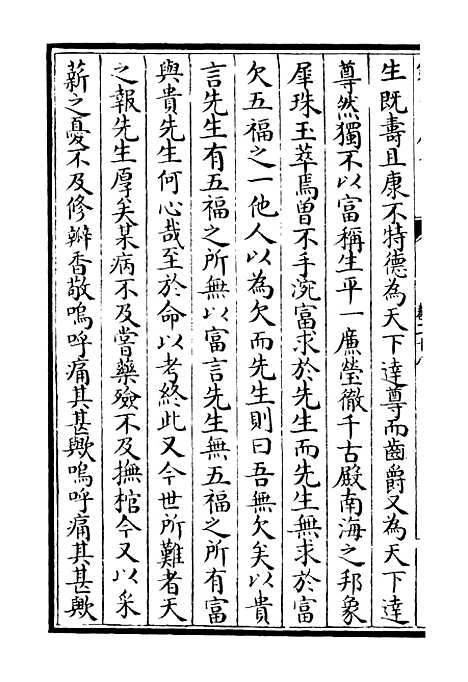 生既壽且康不特德為天下達尊而齒爵又為天下達
尊然獨不以富稱生平一廉瑩徹千古殿南海之邦象
犀珠玉萃焉曽不手涴富求於先生而先生無求於富
欠五福之一他人以為欠而先生則曰吾無欠矣以貴
言先生有五福之所無以富言先生無五福之所有富
與貴先生何心哉至於命以考終此又今世所難者天
之報先生厚矣某病不及嘗藥殮不及撫棺今又以采
薪之憂不及修瓣香敬嗚呼痛其甚歟嗚呼痛其甚歟